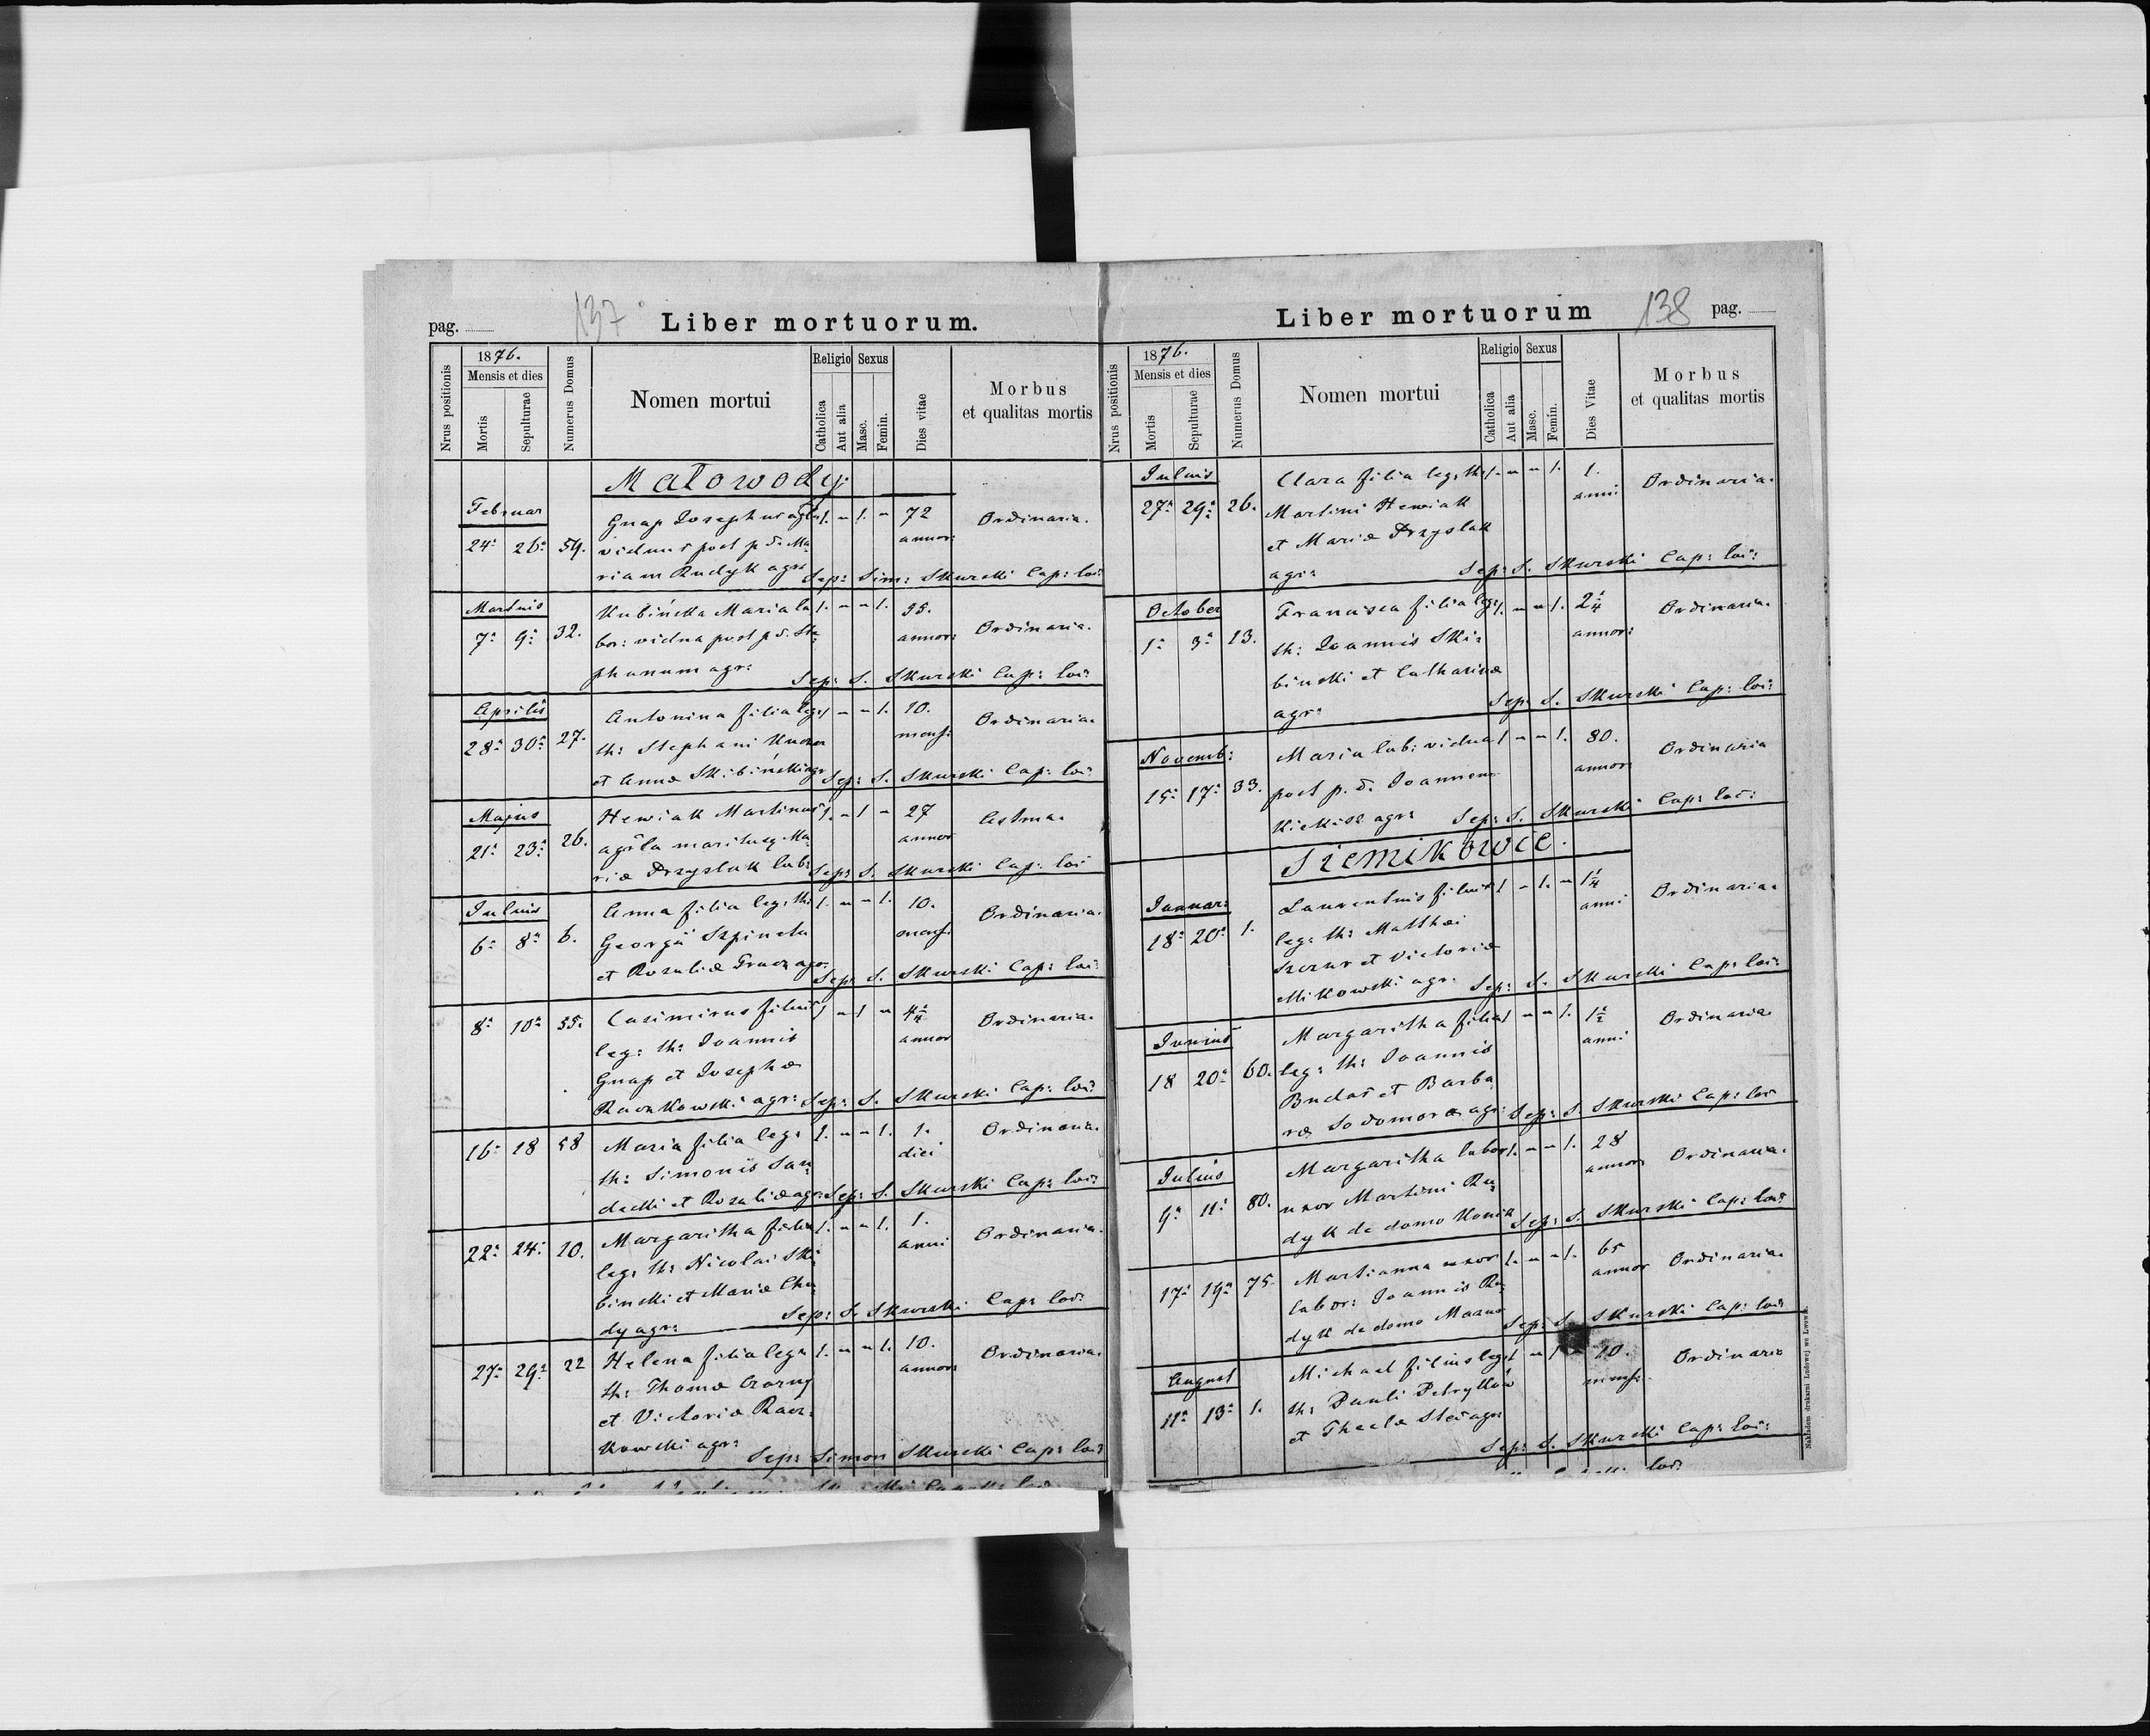 pag.
137
Liber mortuorum.
Nrus positionis
1876.
Mensis et dies
Mortis
Sepulturae
Numerus Domus
Nomen mortui
Religio
Catholica
Aut alia
Sexus
Masc.
Femin.
Dies vitae
Morbus
et qualitas mortis
Małowody:
Februar
Gnap Josephus 1. - 1. - 72 Ordinaria.
24: 26: 59. viduus post p. d. Ma annor:
riam Rudyk agr Sep: Sim: Skurski Cap: loc:
Martius
Kubińska Maria la 1. - - 1. 35.
7: 9: 32. bor: vidua post p. d. Ste annor: Ordinaria.
phanum agr: Sep: S. Skurski Cap: loc:
Aprilis
Antonina filia leg: 1 - - 1. 10. Ordinaria.
28: 30: 27. th: Stephani mens:
et Annæ Skibiński agr Sep: S. Skurski Cap: loc:
Majus
Hewiak Martinus 1. - 1 - 27 Astma.
21: 23: 26. agrla maritusq. Ma annor
riæ Przyslak lab: Sep: S. Skurski Cap: loc:
Julius
Anna filia leg. th: 1. - - 1. 10. Ordinaria.
6: 8: 6. Georgii Szpineta mens:
et Rosaliæ agr: Sep: S. Skurski Cap: loc:
8: 10: 55. Casimirus filius 1 - 1 - 4 Ordinaria.
leg: th: Joannis annor
Gnap et Josephæ
Raczkowski agr: Sep: S. Skurski Cap: loc:
16: 18 58 Maria filia leg: 1. - - 1. 1. Ordinaria.
th: Simonis San diei
decki et Rosaliæ agr: Sep: S. Skurski Cap: loc:
22: 24: 10. Margaritha filia 1. - - 1. 1. Ordinaria.
leg: th: Nicolai Ski anni
binski et Mariæ Chu
dy agr: Sep: S. Skurski Cap: loc:
27: 29: 22 Helena filia leg: 1. - - 1. 10. Ordinaria.
th: Thomæ Czarny annor:
et Victoriæ Racz:
kowski agr:
Sep: Simon Skurski Cap: loc:
Liber mortuorum
138
pag.
Nrus positionis
1876.
Mensis et dies
Mortis
Sepulturae
Numerus Domus
Nomen mortui
Religio
Catholica
Aut alia
Sexus
Masc.
Femin.
Dies Vitae
Morbus
et qualitas mortis
Julius
Clara filia leg: th: 1. - - 1. 1. Ordinaria.
27: 29: 26. Martini Hewiak anni
et Mariæ Przyslak
agr: Sep: S. Skurski Cap: loc:
October
Francisca filia leg: 1. - - 1. 2 Ordinaria.
1: 3: 13. th: Joannis Ski: annor:
binski et Catharinæ
agr: Sep: S. Skurski Cap: loc:
Novemb:
Maria lab: vidua 1 - - 1. 80. Ordinaria
15: 17: 33. post p. d. Joannem annor:
Kiekisz agr: Sep: S. Skurski Cap: loc:
Siemikowce.
Januar:
Laurentius filius 1 - 1. - 1 1/4 Ordinaria.
18: 20: 1. leg: th: Matthæi anni
Szczur et Victoriæ
Mikowski agr. Sep: S. Skurski Cap: loc:
Junius
Margaritha filia 1 - - 1. 1 1/2 Ordinaria.
18 20: 60. leg: th: Joannis anni
Budas et Barba
ræ Sodomoræ agr: Sep: S. Skurski Cap: loc
Julius
Margaritha labor 1. - - 1. 28 Ordinaria.
9: 11: 80. uxor Martini Ru annor:
dyk de domo Konik Sep: S. Skurski Cap: loc:
17: 19: 75. Martianna uxor 1. - - 1. 65 Ordinaria.
labor: Joannis Ru annor
dyk de domo Mazur Sep: S. Skurski Cap: loc:
August
Michael filius leg: 1 - 1 10. Ordinaria
11: 13: 1. th: Pauli Petryków mens:
et Theclæ agr:
Sep: S. Skurski Cap: loc:
Nakładem drukarni Ludowej we Lwowie.